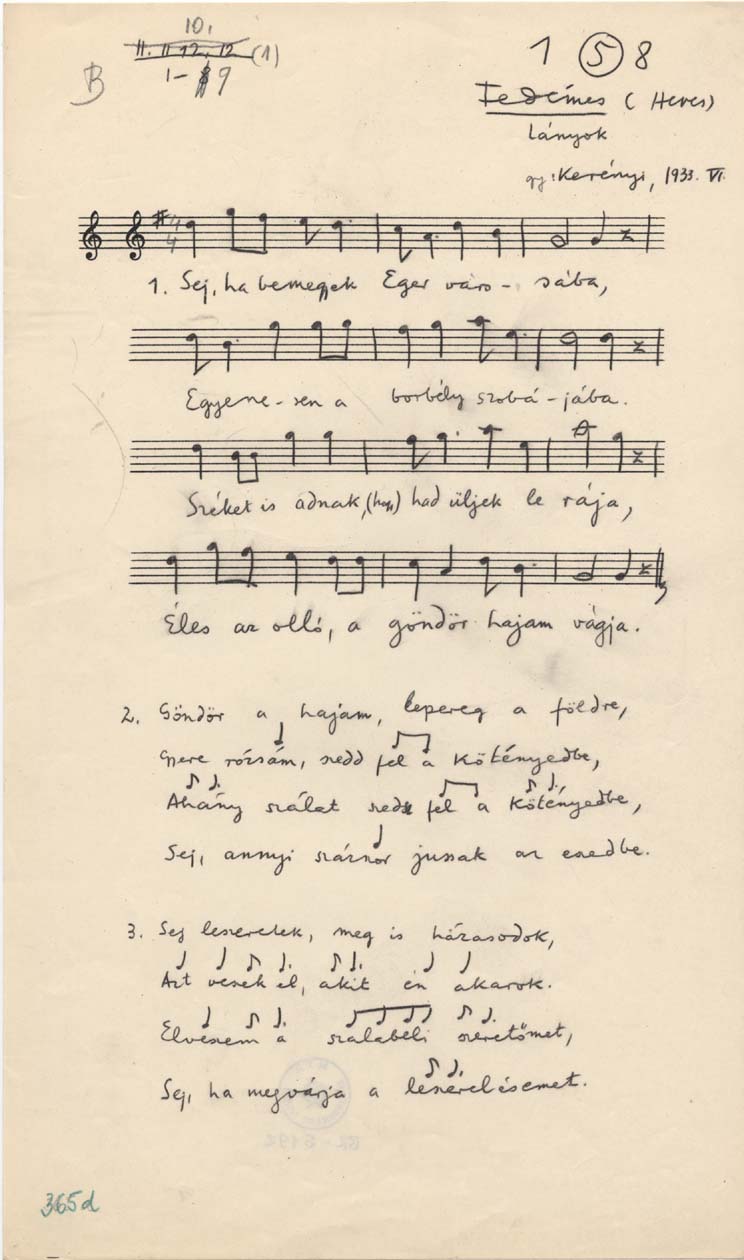 10.
11. 11 12. 12 (1)
B
1-9
1 5 8
Fedémes (Heves)
Lányok
gy: Kerényi, 1933. VI.
4
4
1. Sej, ha bemegyek Eger váro - sába,
Egyene - sen a borbély szobá - jába.
Széket is adnak, (hogy) had üljek le rája,
Éles az olló, a göndör hajam vágja.
2. Göndör a hajam, lepereg a földre,
Gyere rózsám, szedd fel a kötényedbe,
Ahány szálat szedsz fel a kötényedbe,
Sej, annyi százszor jussak az eszedbe.
3. Sej leszerelek, meg is házasodok,
Azt veszek el, akit én akarok.
Elveszem a szalabeli szeretőmet,
Sej, ha megvárja a leszerelésemet.
365d